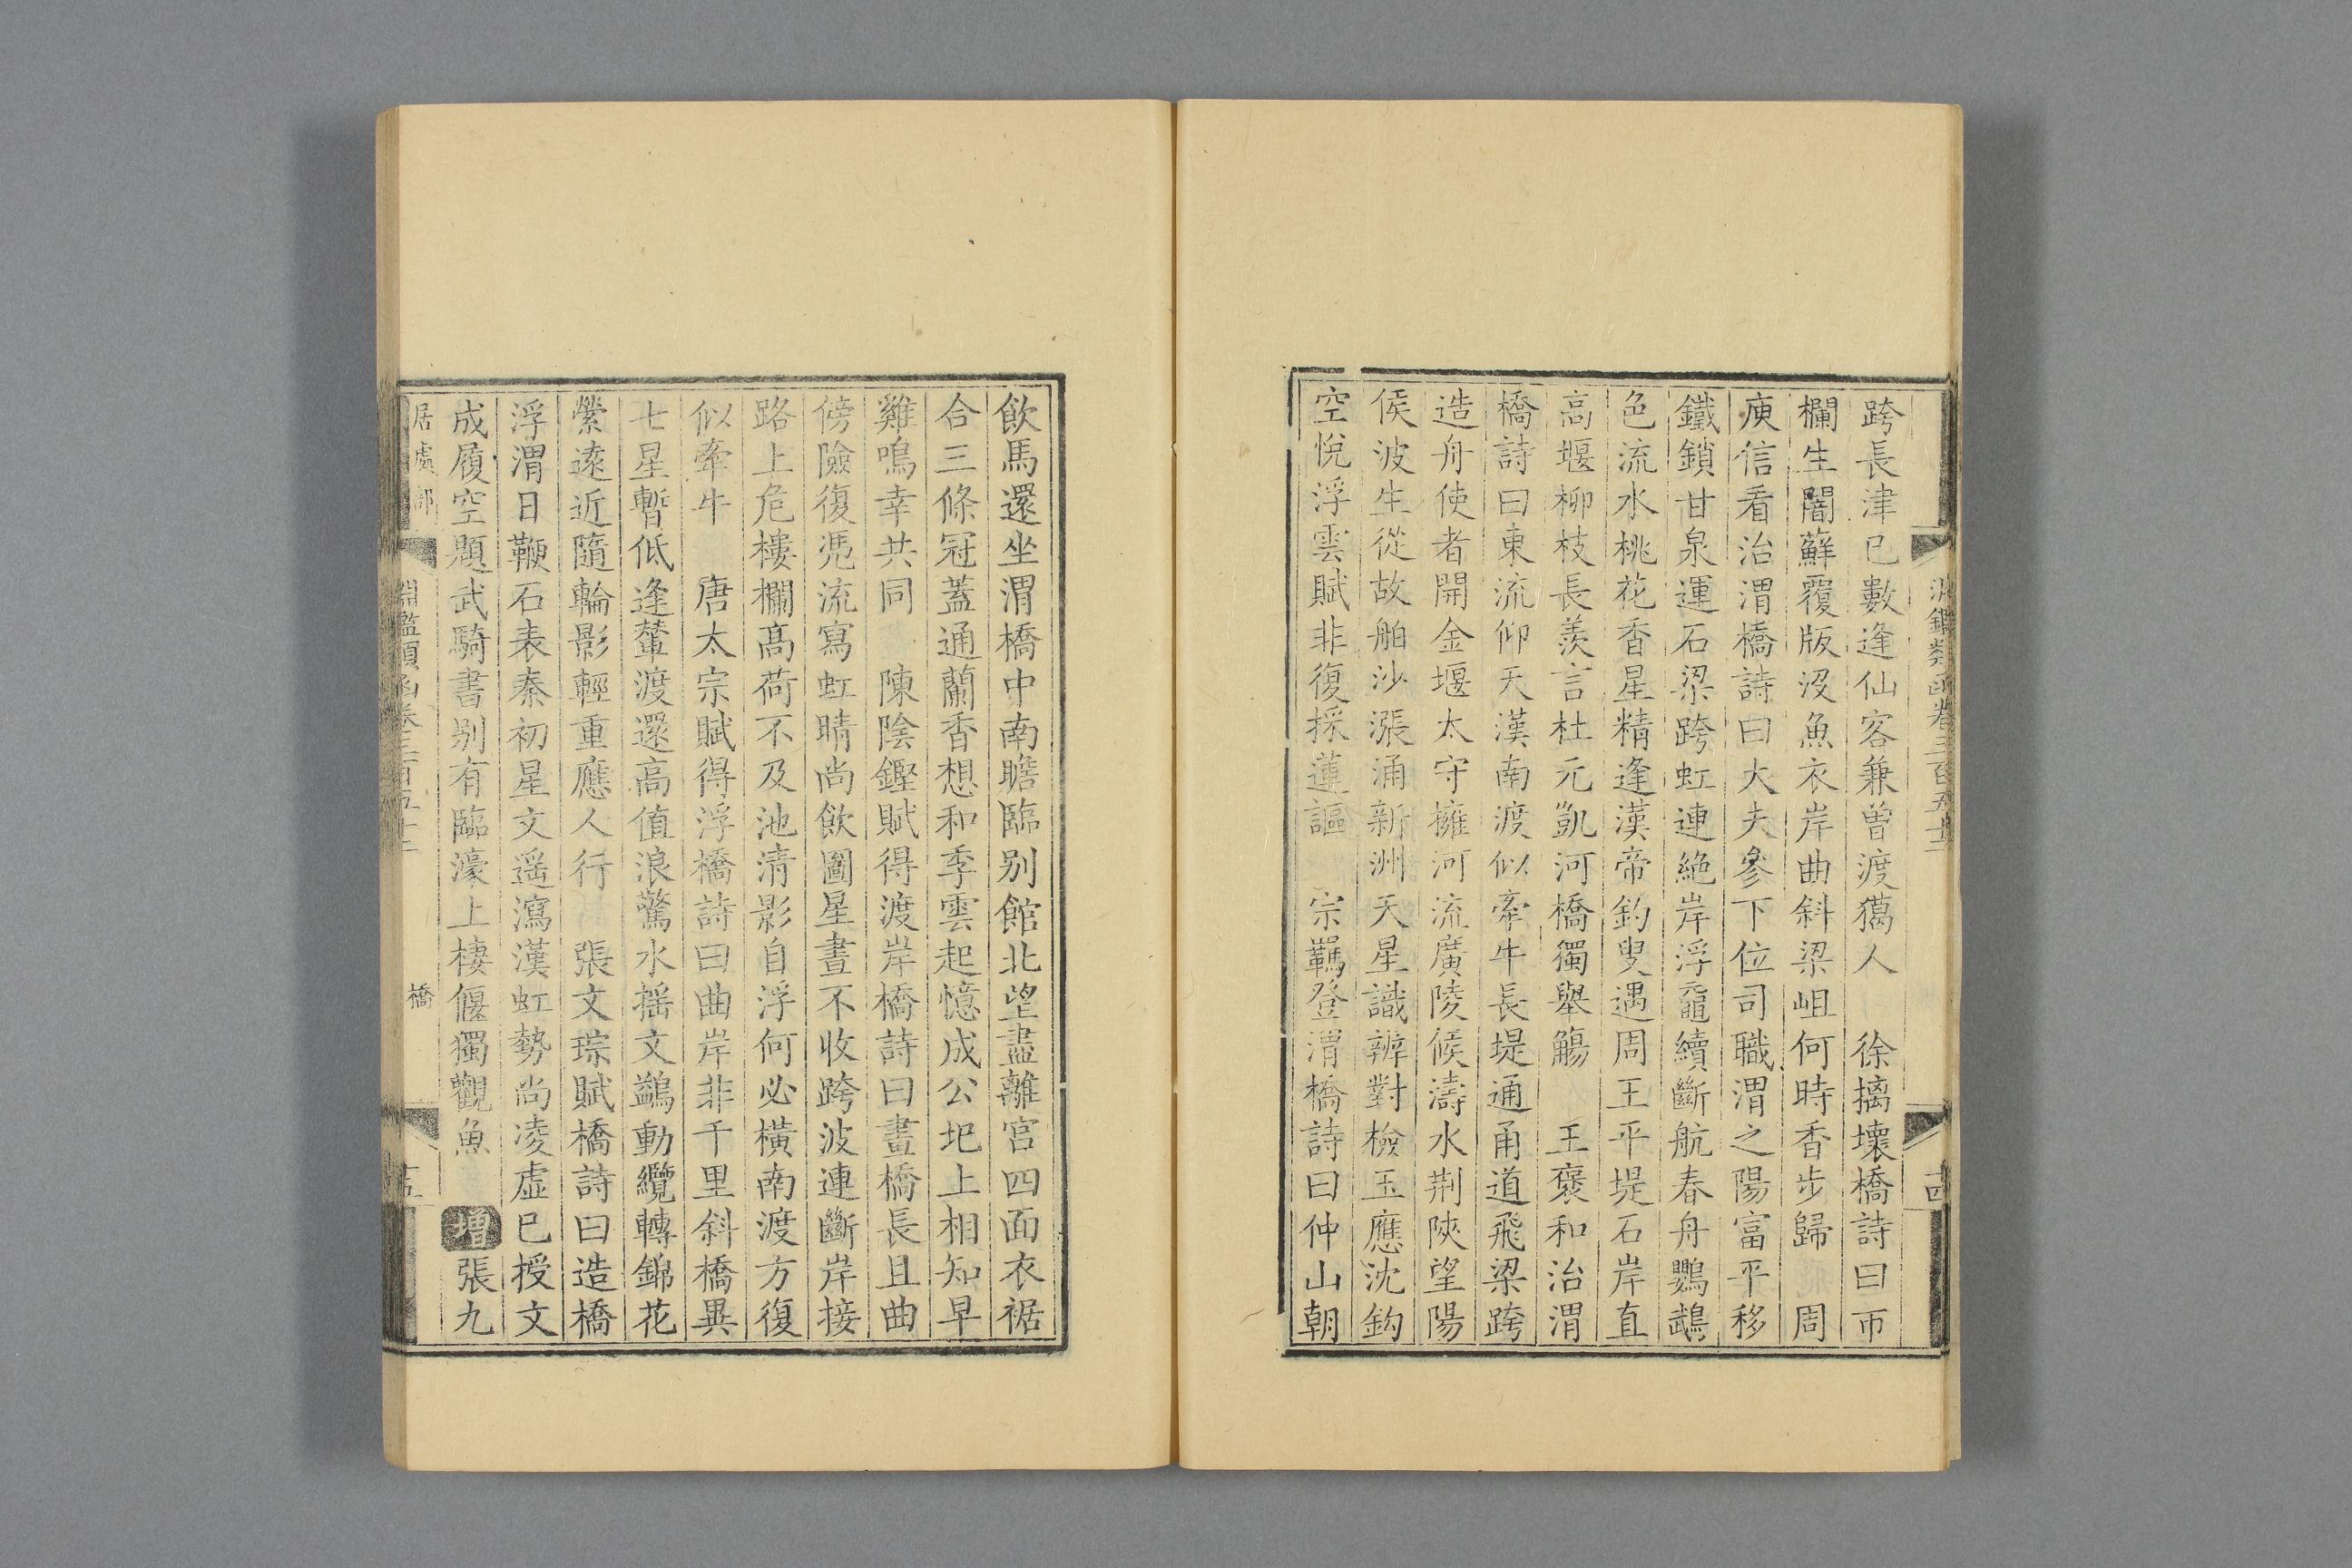 跨長津已數逢仙客兼曾渡獦人 徐摛壞橋詩曰帀
欄生闇蘚覆版沒魚衣岸曲斜梁岨何時香步歸 周
庾信看治渭橋詩曰大夫參下位司職渭之陽富平移
鐵鎖甘泉運石梁跨虹連絶岸浮黿續斷航春舟鸚鵡
色流水桃花香星精逢漢帝釣叟遇周王平堤石岸直
高堰柳枝長羨言杜元凱河橋獨舉觴 王褒和治渭
橋詩曰東流仰天漢南渡似牽牛長堤通甬道飛梁跨
造舟使者開金堰太守擁河流廣陵候濤水荆陝望陽
侯波生從故舶沙漲涌新洲天星識辨對檢玉應沈鈎
空悅浮雲賦非復採蓮謳 宗羈登渭橋詩曰仲山朝
淵鑑類函卷三百五十二
十四
飲馬還坐渭橋中南瞻臨别館北望盡離宮四面衣裾
合三條冠蓋通蘭香想和季雲起憶成公圯上相知早
雞鳴幸共同 陳陰鏗賦得渡岸橋詩曰畫橋長且曲
傍險復凴流寫虹晴尚飲圖星晝不收跨波連斷岸接
路上危樓欄高荷不及池清影自浮何必橫南渡方復
似牽牛 唐太宗賦得浮橋詩曰曲岸非千里斜橋異
七星暫低逢輦渡還高值浪驚水搖文鷁動纜轉錦花
縈遠近隨輪影輕重應人行 張文琮賦橋詩曰造橋
浮渭日鞭石表秦初星文遥瀉漢虹勢尚凌虚已授文
成履空題武騎書别有臨濠上棲偃獨觀魚 增張九
居處部
淵鑑類函卷三百五十二
橋
十五